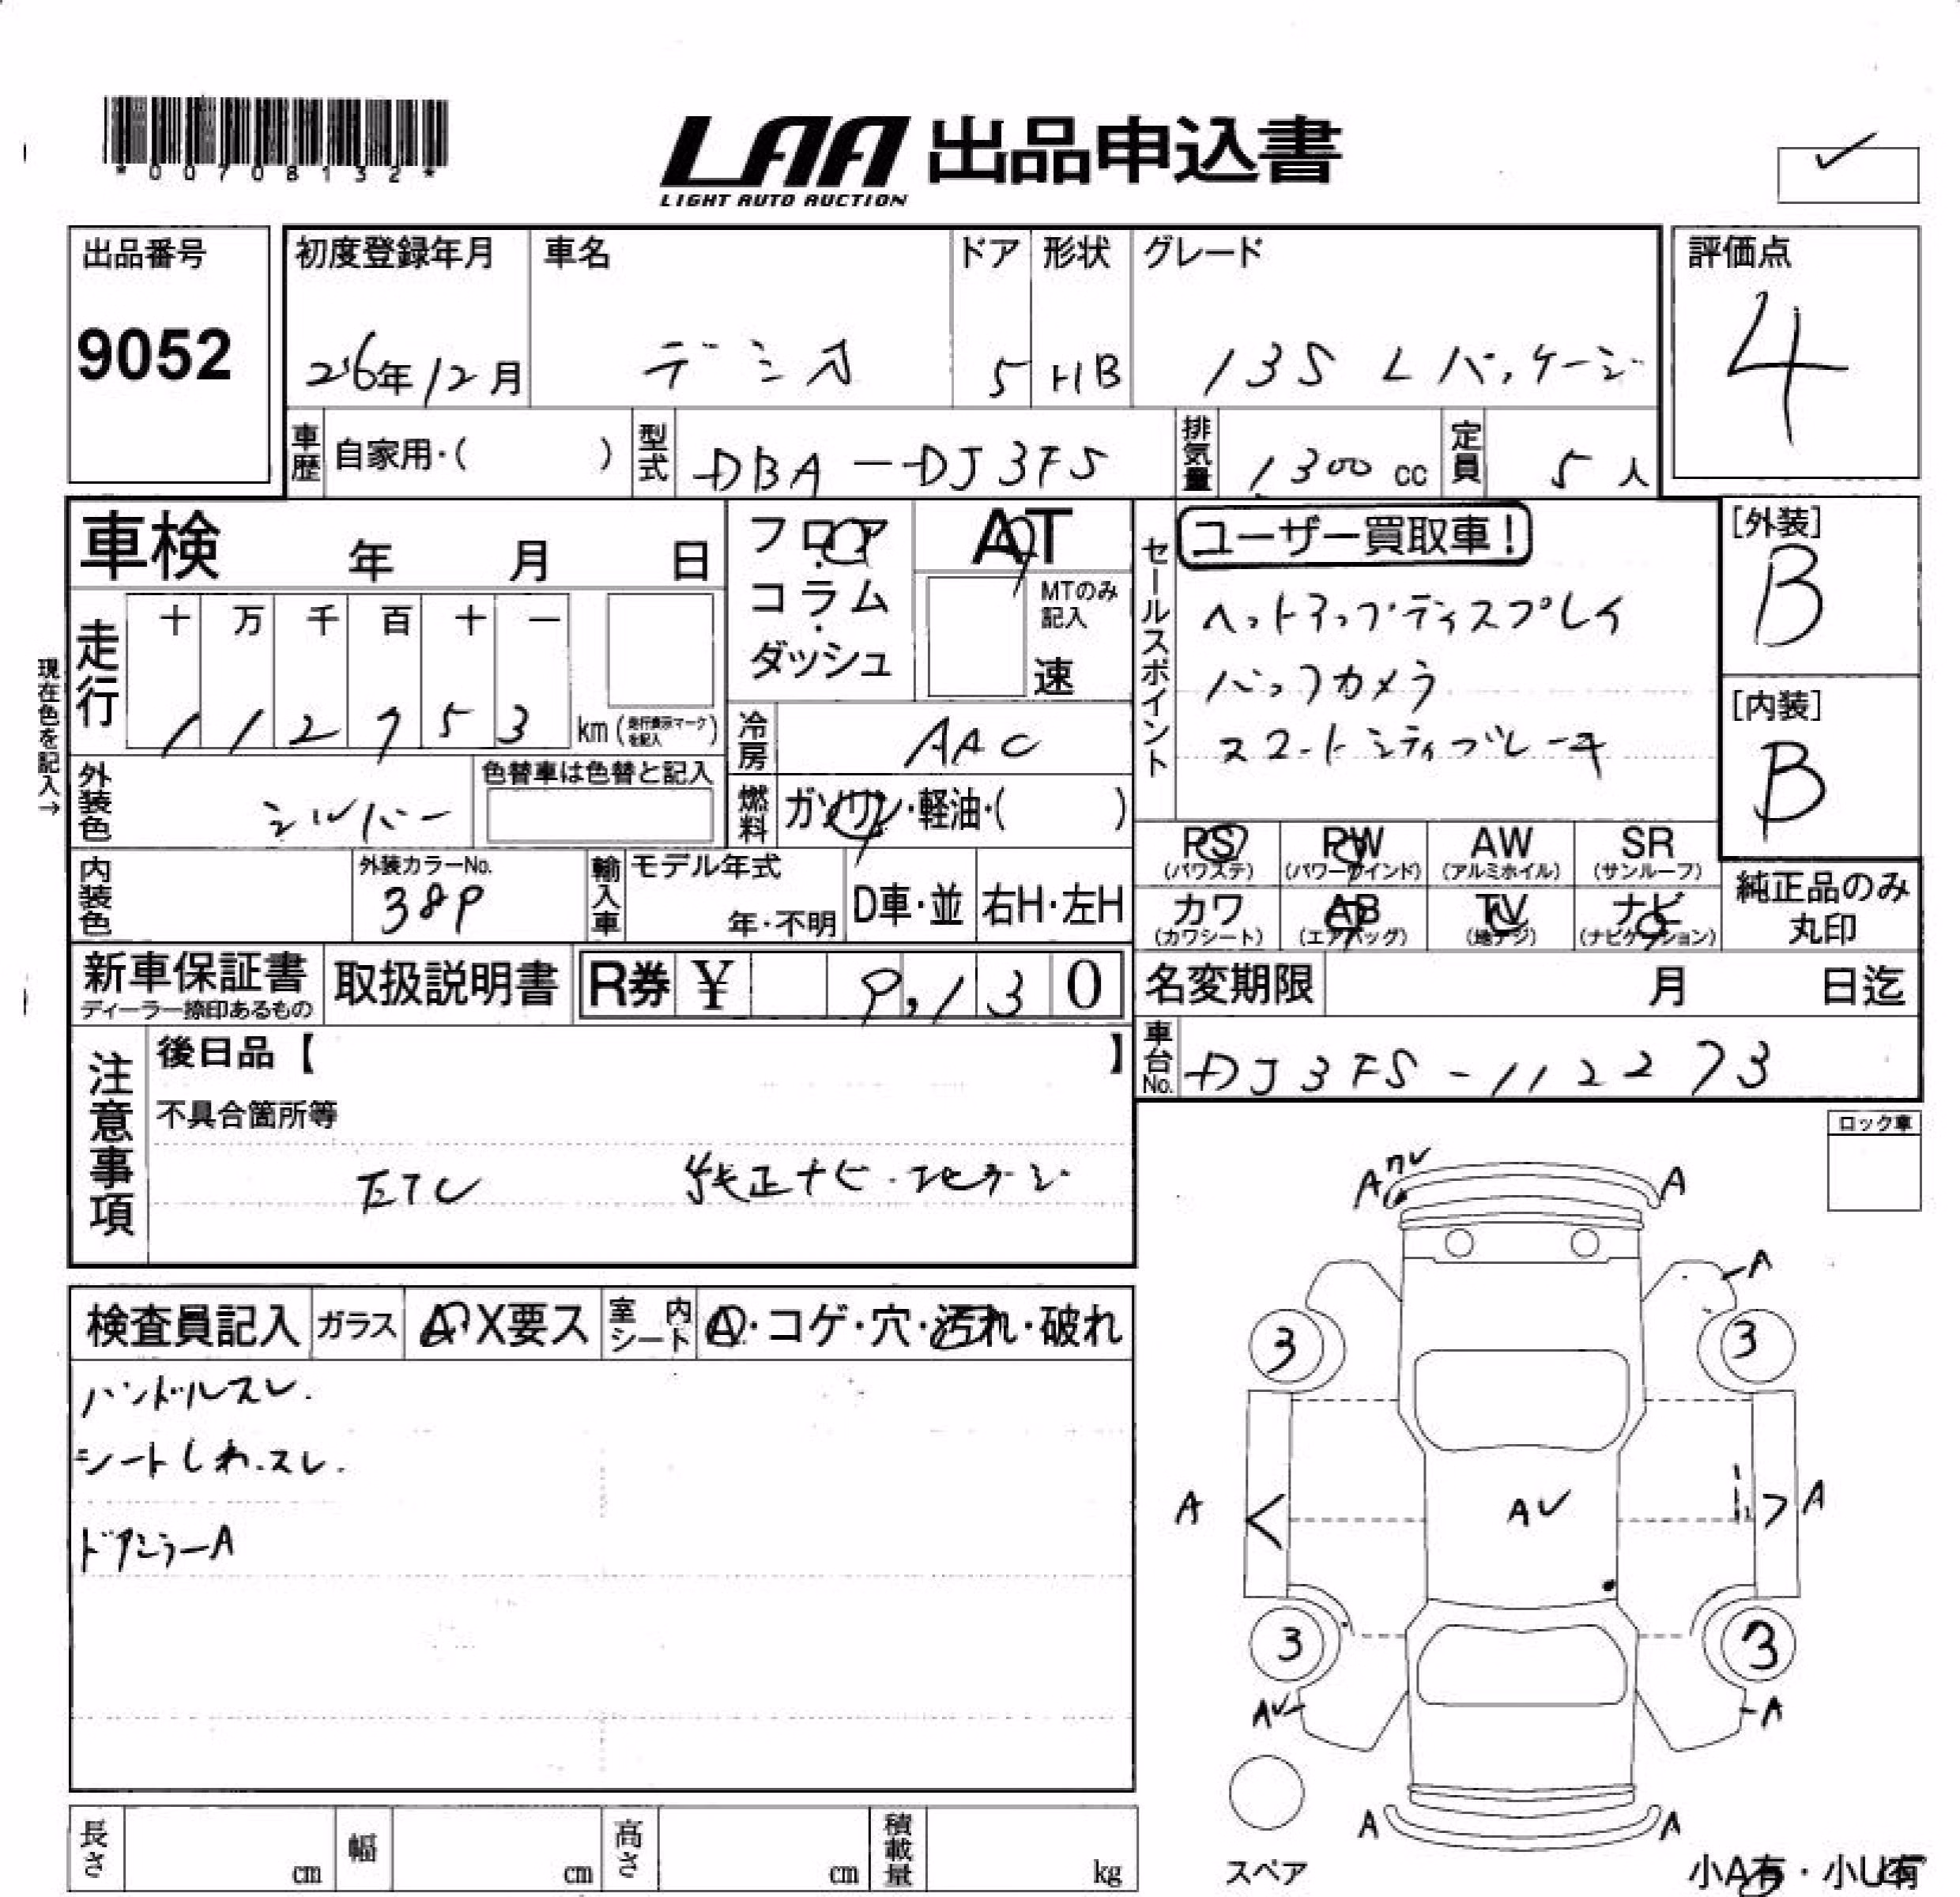 *00708132*
LAA 出品申込書
LIGHT AUTO AUCTION
出品番号
9052
初度登録年月
26年12月
車名
デミオ
ドア
5
形状
HB
グレード
13S Lパッケージ
評価点
4
車歴
自家用・( )
型式
DBA-DJ3FS
排気量
1300 cc
定員
5人
車検 年 月 日
現在色を記入→
走行
十 万 千 百 十 一
1 1 2 7 5 3
km(走行表示マークを記入)
フロア・コラム・ダッシュ
AT
MTのみ記入
速
冷房
AAC
燃料
ガソリン・軽油・( )
外装色
シルバー
色替車は色替と記入
内装色
外装カラーNo.
38P
輸入車
モデル年式
年・不明
D車・並
右H・左H
セールスポイント
ユーザー買取車!
ヘットアップディスプレイ
バックカメラ
スマートシティブレーキ
[外装]
B
[内装]
B
PS
(パワステ)
PW
(パワーウインド)
AW
(アルミホイル)
SR
(サンルーフ)
カワ
(カワシート)
AB
(エアバッグ)
TV
(地デジ)
ナビ
(ナビゲーション)
純正品のみ
丸印
新車保証書
ディーラー捺印あるもの
取扱説明書
R券 ¥ 9,130
名変期限 月 日迄
車台No.
DJ3FS-112273
注意事項
後日品【 】
不具合箇所等
ETC 純正ナビ・地デジ
ロック車
検査員記入
ガラス
A・X要ス
室内シート
A・コゲ・穴・汚れ・破れ
ハンドルスレ.
シートしわ.スレ.
ドアミラーA
A
A
A
3
3
A
AU
A
3
3
AU
A
A
A
スペア
小A有・小U有
長さ cm
幅 cm
高さ cm
積載量 kg